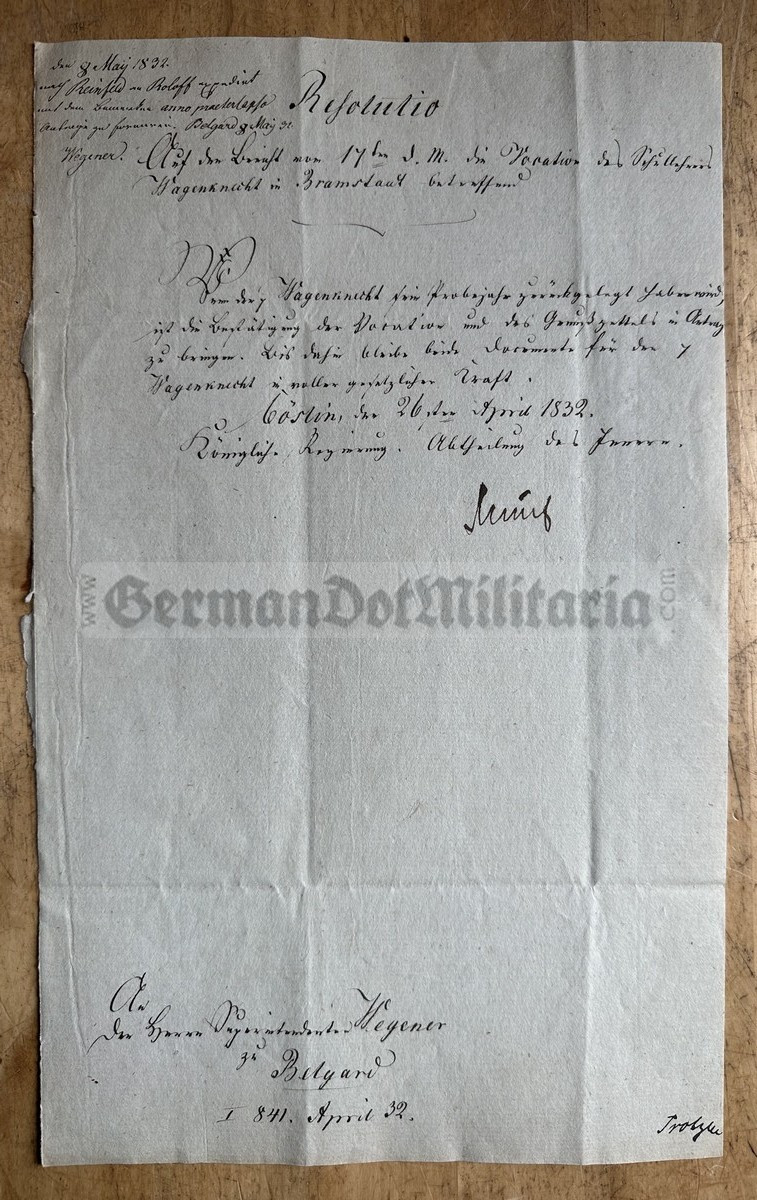 den 8 Maÿ 1832.
nach Reinfeld an Roloff expedirt
mit dem Bemerken anno praeterlapso
Anträge zu formiren. Belgard 8 Maÿ 32.
Wegener.
Resolutio
Auf den Bericht vom 17ten d. M. die Vocation des Schullehrers
Wagenknecht in Bramstaedt betreffend
Wenn der p Wagenknecht sein Probejahr zurückgelegt haben wird,
ist die Bestätigung der Vocation und des in Antrag
zu bringen. Bis dahin bleiben beide Documente für den p
Wagenknecht in voller gesetzlicher Kraft.
Cöslin, den 26sten April 1832.
Königliche Regierung. Abtheilung des Innern.
www.GermanDotMilitaria.com
An
den Herrn Superintendenten Wegener
zu
Belgard
I 841. April 32.